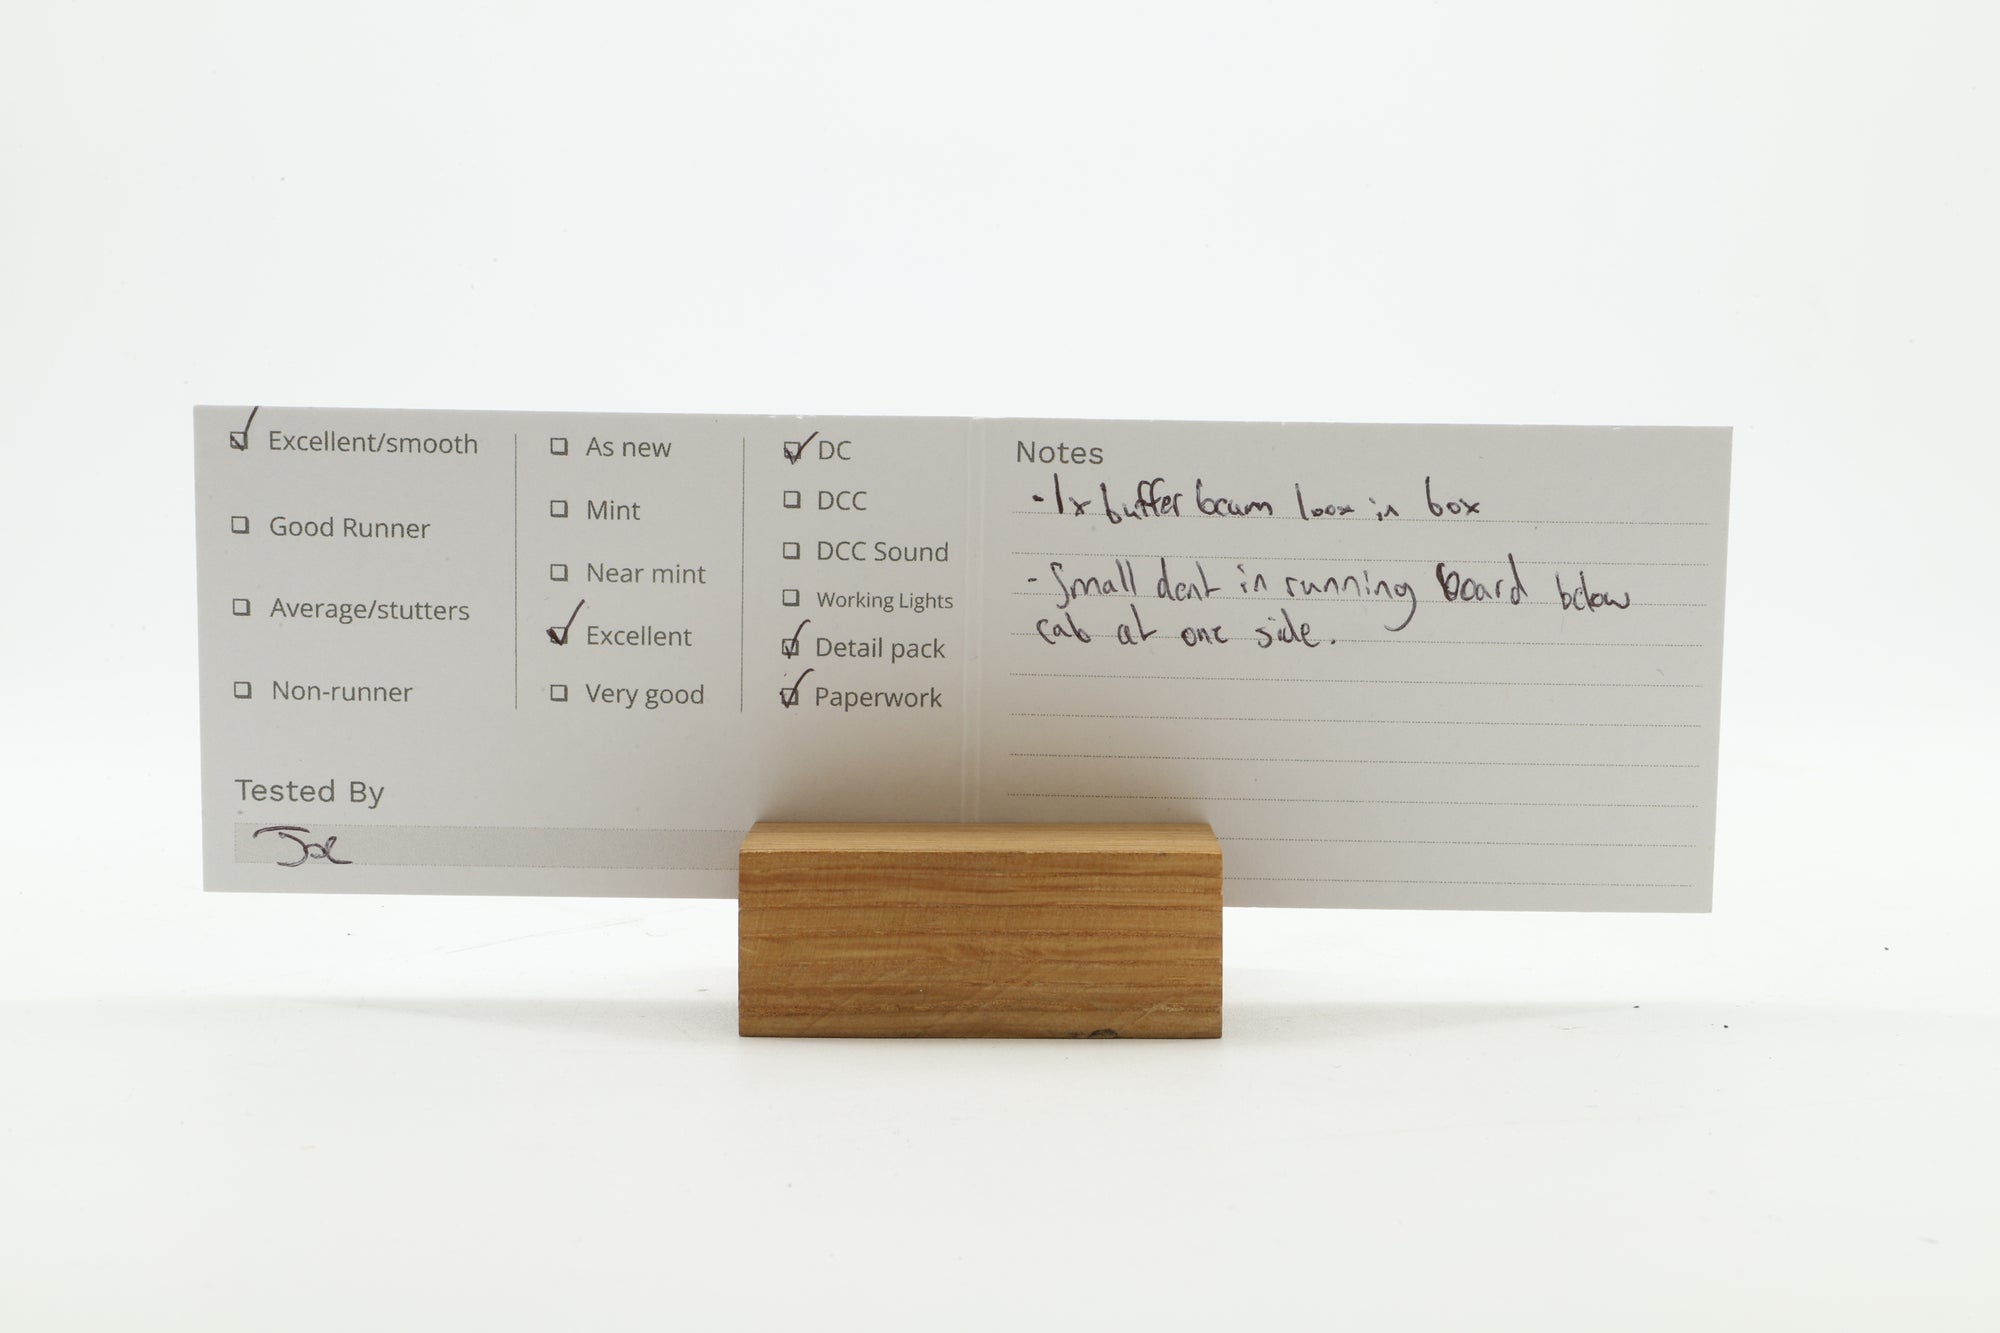 Excellent/smooth
Good Runner
Average/stutters
Non-runner
As new
Mint
Near mint
Excellent
Very good
DC
DCC
DCC Sound
Working Lights
Detail pack
Paperwork
Tested By
Joe
Notes
-1x buffer beam loose in box
-Small dent in running board below
cab at one side.